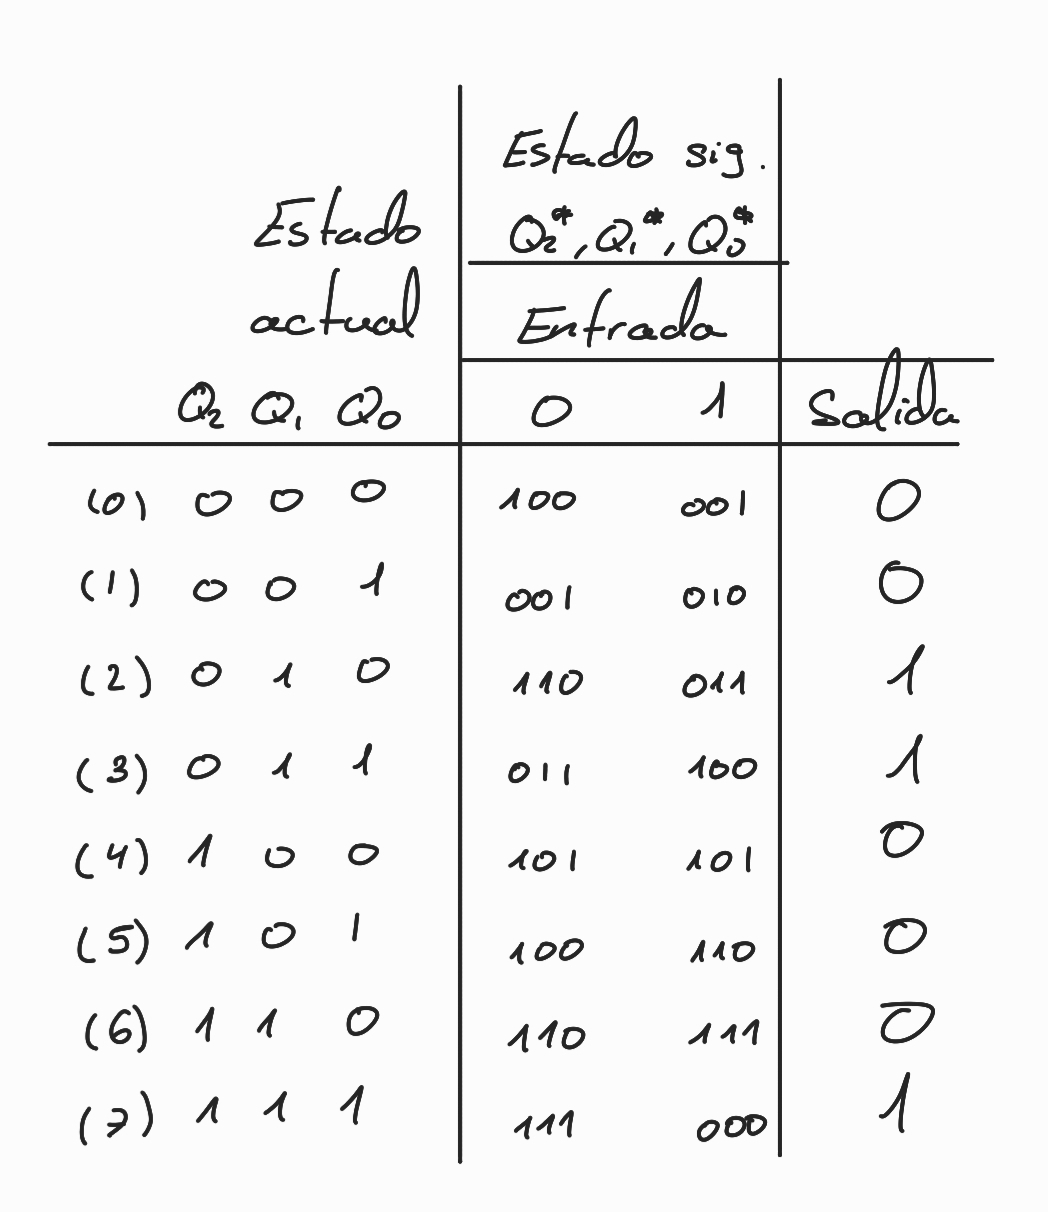 Estado sig.
Estado Q2*, Q1*, Q0*
actual Entrada
Q2 Q1 Q0 0 1 Salida
(0) 0 0 0 100 001 0
(1) 0 0 1 001 010 0
(2) 0 1 0 110 011 1
(3) 0 1 1 011 100 1
(4) 1 0 0 101 101 0
(5) 1 0 1 100 110 0
(6) 1 1 0 110 111 0
(7) 1 1 1 111 000 1